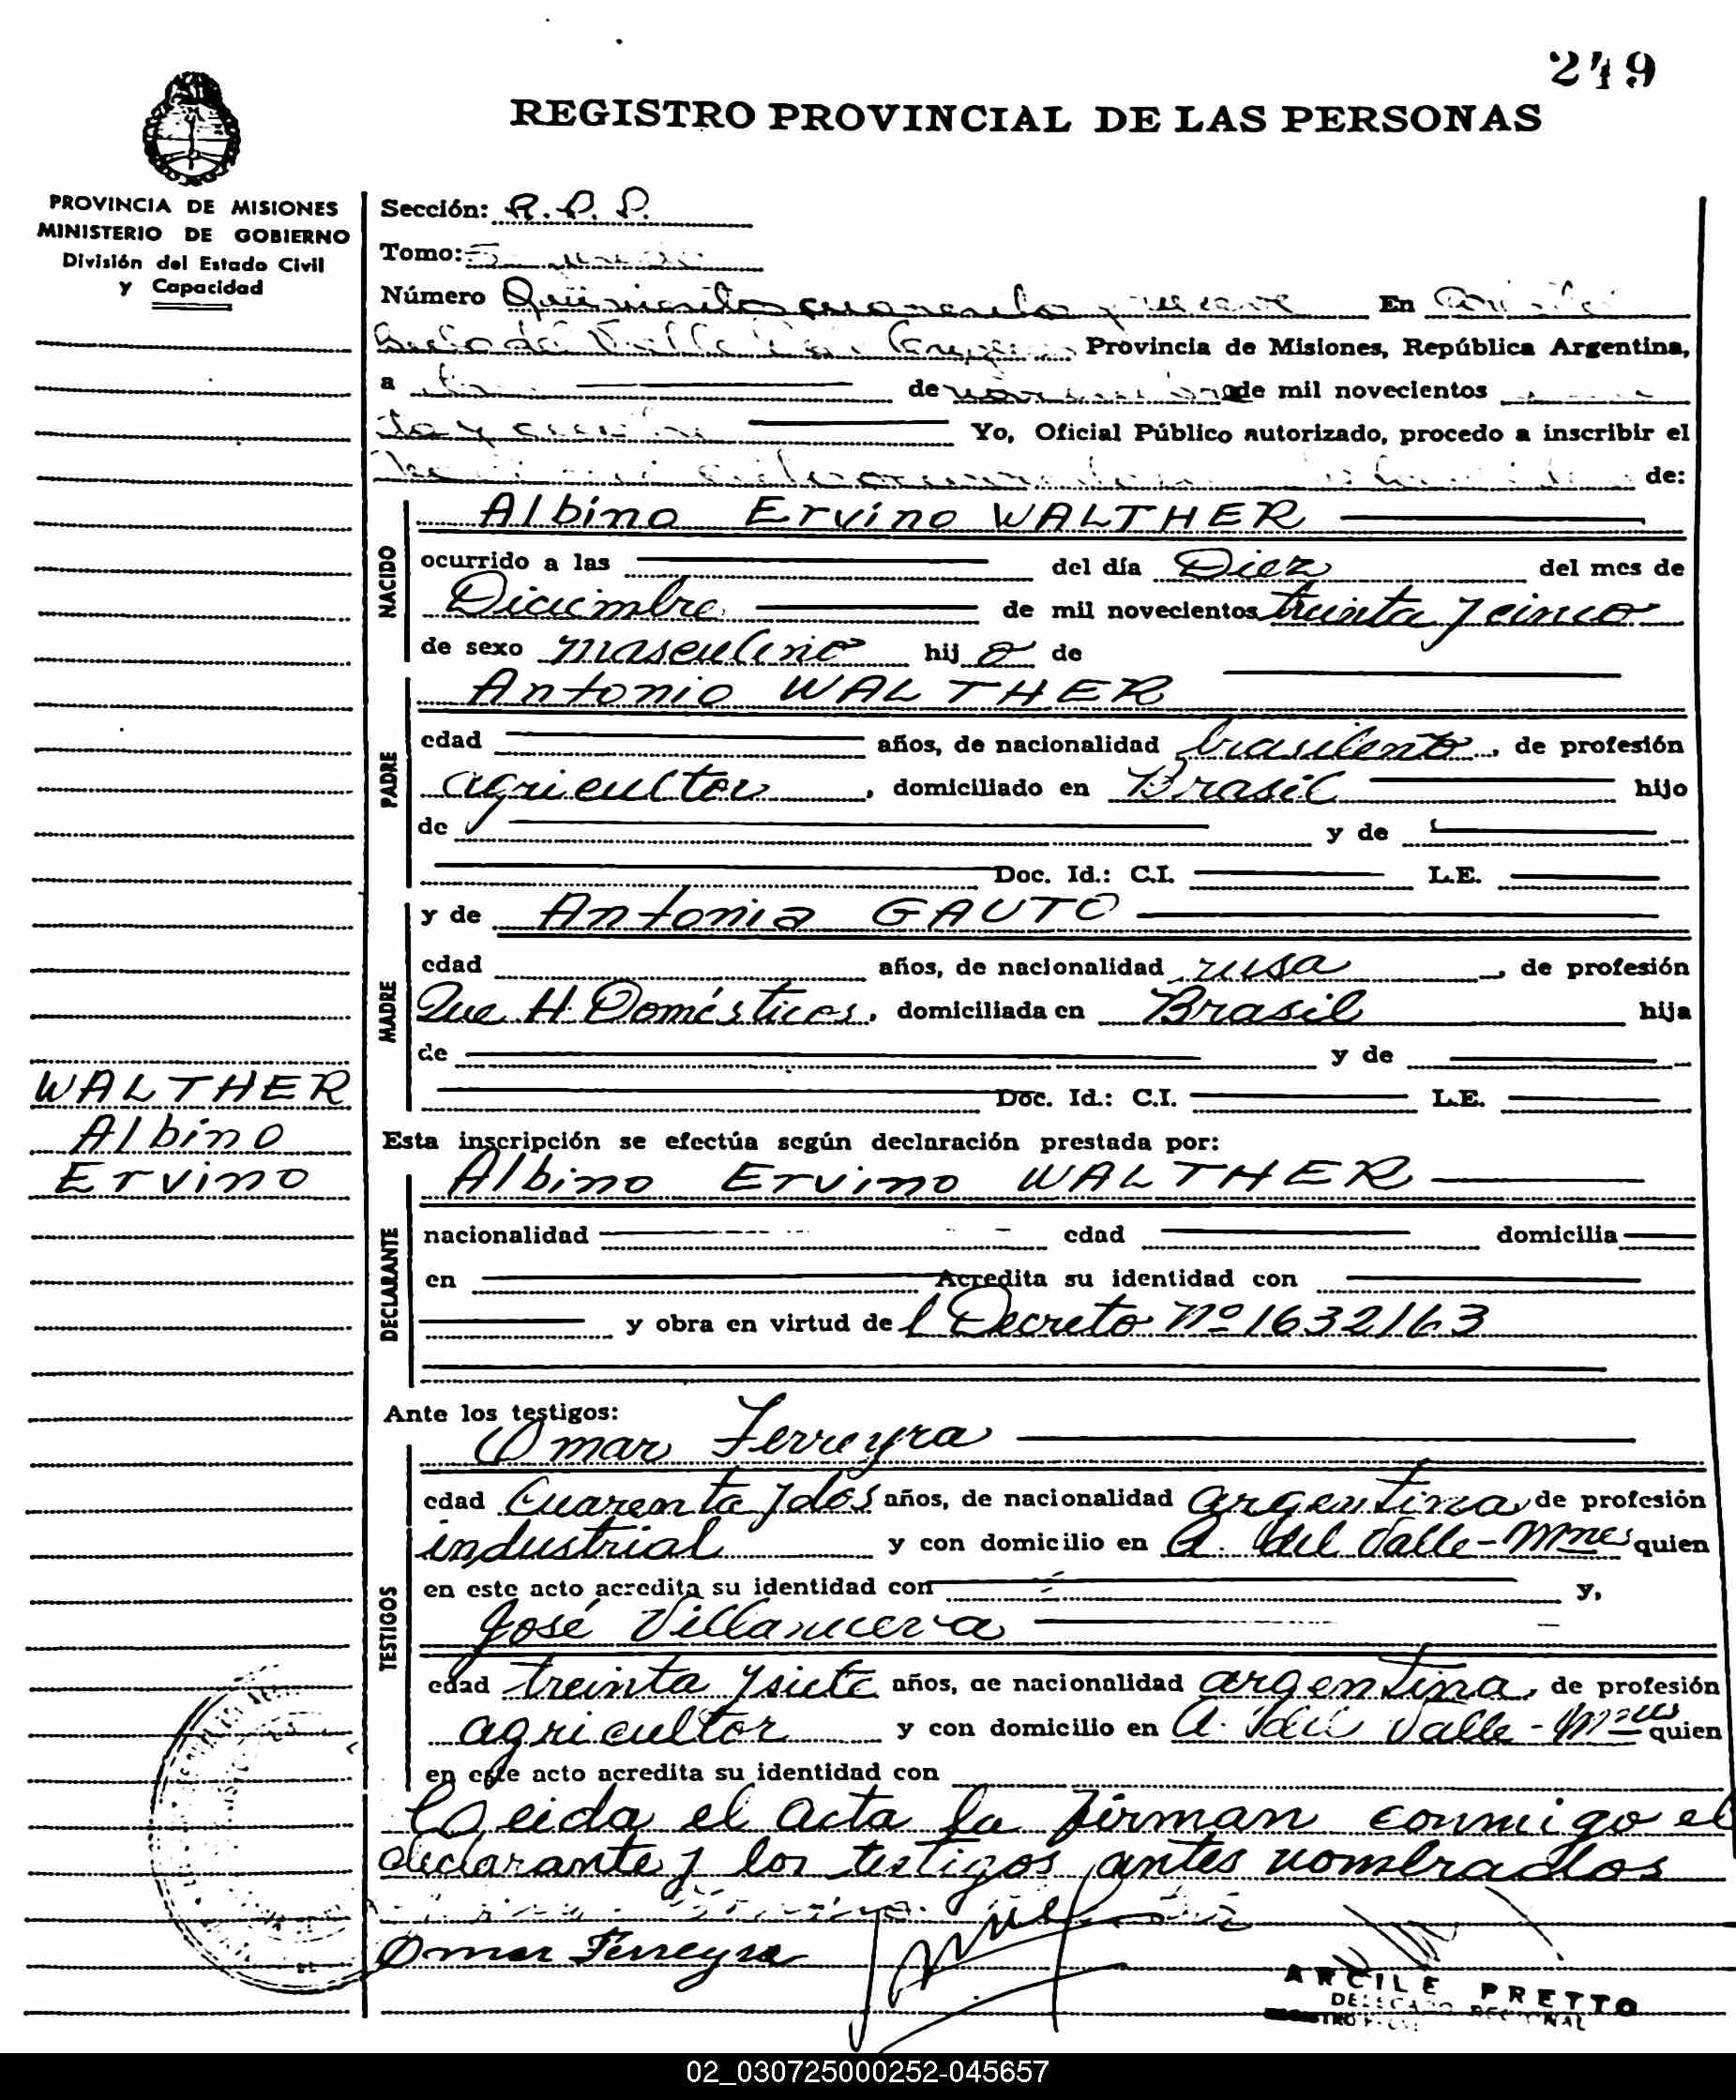 249
REGISTRO PROVINCIAL DE LAS PERSONAS
PROVINCIA DE MISIONES
MINISTERIO DE GOBIERNO
División del Estado Civil
y Capacidad
Sección: R. P. P.
Tomo:
Número Quinientos cuarenta y nueve En
Provincia de Misiones, República Argentina,
a de de mil novecientos
Yo, Oficial Público autorizado, procedo a inscribir el
de:
NACIDO
Albino Ervino WALTHER
ocurrido a las del día Diez del mes de
Diciembre de mil novecientos treinta y cinco
de sexo masculino hij o de
PADRE
Antonio WALTHER
edad años, de nacionalidad brasilento, de profesión
agricultor, domiciliado en Brasil hijo
de y de
Doc. Id.: C.I. L.E.
MADRE
y de Antonia GAUTO
edad años, de nacionalidad rusa, de profesión
Que H. Domésticos, domiciliada en Brasil hija
de y de
Doc. Id.: C.I. L.E.
WALTHER
Albino
Ervino
Esta inscripción se efectúa según declaración prestada por:
DECLARANTE
Albino Ervino WALTHER
nacionalidad edad domicilia
en Acredita su identidad con
y obra en virtud de l Decreto Nº 1632/63
Ante los testigos:
TESTIGOS
Omar Ferreyra
edad Cuarenta y dos años, de nacionalidad argentina, de profesión
industrial y con domicilio en A. del Valle - Mnes quien
en este acto acredita su identidad con y,
José Villanueva
edad treinta y siete años, de nacionalidad argentina, de profesión
agricultor y con domicilio en A. del Valle - Mnes quien
en este acto acredita su identidad con
Leida el acta la firman conmigo el
declarante y los testigos antes nombrados
Omar Ferreyra
ARCILE PRETTO
DELEGADO REGIONAL
02_030725000252-045657